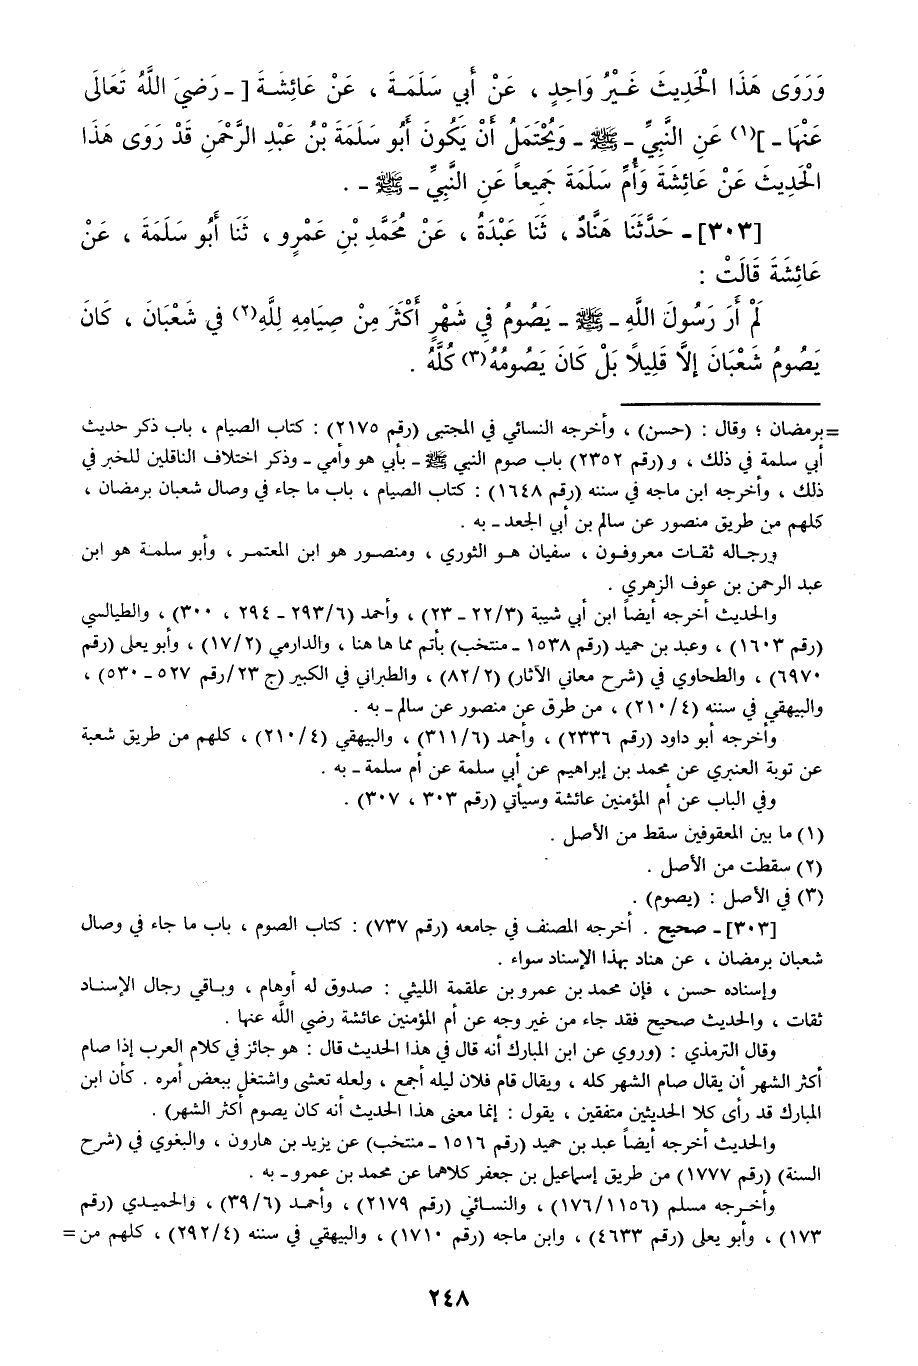 وَرَوَى هَذَا الْحَدِيثَ غَيْرُ وَاحِدٍ ، عَنْ أَبِي سَلَمَةَ ، عَنْ عَائِشَةَ [ ـ رَضِيَ اللَّهُ تَعَالَى
عَنْهَا ـ ](١) عَنِ النَّبِيِّ ـ ﷺ ـ وَيُحْتَمَلُ أَنْ يَكُونَ أَبُو سَلَمَةَ بْنُ عَبْدِ الرَّحْمَنِ قَدْ رَوَى هَذَا
الْحَدِيثَ عَنْ عَائِشَةَ وَأُمِّ سَلَمَةَ جَمِيعاً عَنِ النَّبِيِّ ـ ﷺ ـ .
[٣٠٣] ـ حَدَّثَنَا هَنَّادٌ ، ثَنَا عَبْدَةُ ، عَنْ مُحَمَّدِ بْنِ عَمْرٍو ، ثَنَا أَبُو سَلَمَةَ ، عَنْ
عَائِشَةَ قَالَتْ :
لَمْ أَرَ رَسُولَ اللَّهِ ـ ﷺ ـ يَصُومُ فِي شَهْرٍ أَكْثَرَ مِنْ صِيَامِهِ لِلَّهِ(٢) فِي شَعْبَانَ ، كَانَ
يَصُومُ شَعْبَانَ إِلَّا قَلِيلاً بَلْ كَانَ يَصُومُهُ(٣) كُلَّهُ .
= برمضان ؛ وقال : (حسن) ، وأخرجه النسائي في المجتبى (رقم ٢١٧٥) : كتاب الصيام ، باب ذكر حديث
أبي سلمة في ذلك ، و (رقم ٢٣٥٢) باب صوم النبي ﷺ ـ بأبي هو وأمي ـ وذكر اختلاف الناقلين للخبر في
ذلك ، وأخرجه ابن ماجه في سننه (رقم ١٦٤٨) : كتاب الصيام ، باب ما جاء في وصال شعبان برمضان ،
كلهم من طريق منصور عن سالم بن أبي الجعد ـ به .
ورجاله ثقات معروفون ، سفيان هو الثوري ، ومنصور هو ابن المعتمر ، وأبو سلمة هو ابن
عبد الرحمن بن عوف الزهري .
والحديث أخرجه أيضاً ابن أبي شيبة (٢٢/٣ ـ ٢٣) ، وأحمد (٢٩٣/٦ ـ ٢٩٤ ، ٣٠٠) ، والطيالسي
(رقم ١٦٠٣) ، وعبد بن حميد (رقم ١٥٣٨ ـ منتخب) بأتم مما ها هنا ، والدارمي (١٧/٢) ، وأبو يعلى (رقم
٦٩٧٠) ، والطحاوي في (شرح معاني الآثار) (٨٢/٢) ، والطبراني في الكبير (ج ٢٣/رقم ٥٢٧ ـ ٥٣٠) ،
والبيهقي في سننه (٢١٠/٤) ، من طرق عن منصور عن سالم ـ به .
وأخرجه أبو داود (رقم ٢٣٣٦) ، وأحمد (٣١١/٦) ، والبيهقي (٢١٠/٤) ، كلهم من طريق شعبة
عن توبة العنبري عن محمد بن إبراهيم عن أبي سلمة عن أم سلمة ـ به .
وفي الباب عن أم المؤمنين عائشة وسيأتي (رقم ٣٠٣ ، ٣٠٧) .
(١) ما بين المعقوفين سقط من الأصل .
(٢) سقطت من الأصل .
(٣) في الأصل : (يصوم) .
[٣٠٣] ـ صحيح . أخرجه المصنف في جامعه (رقم ٧٣٧) : كتاب الصوم ، باب ما جاء في وصال
شعبان برمضان ، عن هناد بهذا الإسناد سواء .
وإسناده حسن ، فإن محمد بن عمرو بن علقمة الليثي : صدوق له أوهام ، وباقي رجال الإسناد
ثقات ، والحديث صحيح فقد جاء من غير وجه عن أم المؤمنين عائشة رضي الله عنها .
وقال الترمذي : (وروي عن ابن المبارك أنه قال في هذا الحديث قال : هو جائز في كلام العرب إذا صام
أكثر الشهر أن يقال صام الشهر كله ، ويقال قام فلان ليله أجمع ، ولعله تعشى واشتغل ببعض أمره . كأن ابن
المبارك قد رأى كلا الحديثين متفقين ، يقول : إنما معنى هذا الحديث أنه كان يصوم أكثر الشهر) .
والحديث أخرجه أيضاً عبد بن حميد (رقم ١٥١٦ ـ منتخب) عن يزيد بن هارون ، والبغوي في (شرح
السنة) (رقم ١٧٧٧) من طريق إسماعيل بن جعفر كلاهما عن محمد بن عمرو ـ به .
وأخرجه مسلم (١٧٦/١١٥٦) ، والنسائي (رقم ٢١٧٩) ، وأحمد (٣٩/٦) ، والحميدي (رقم
١٧٣) ، وأبو يعلى (رقم ٤٦٣٣) ، وابن ماجه (رقم ١٧١٠) ، والبيهقي في سننه (٢٩٢/٤) ، كلهم من =
٢٤٨